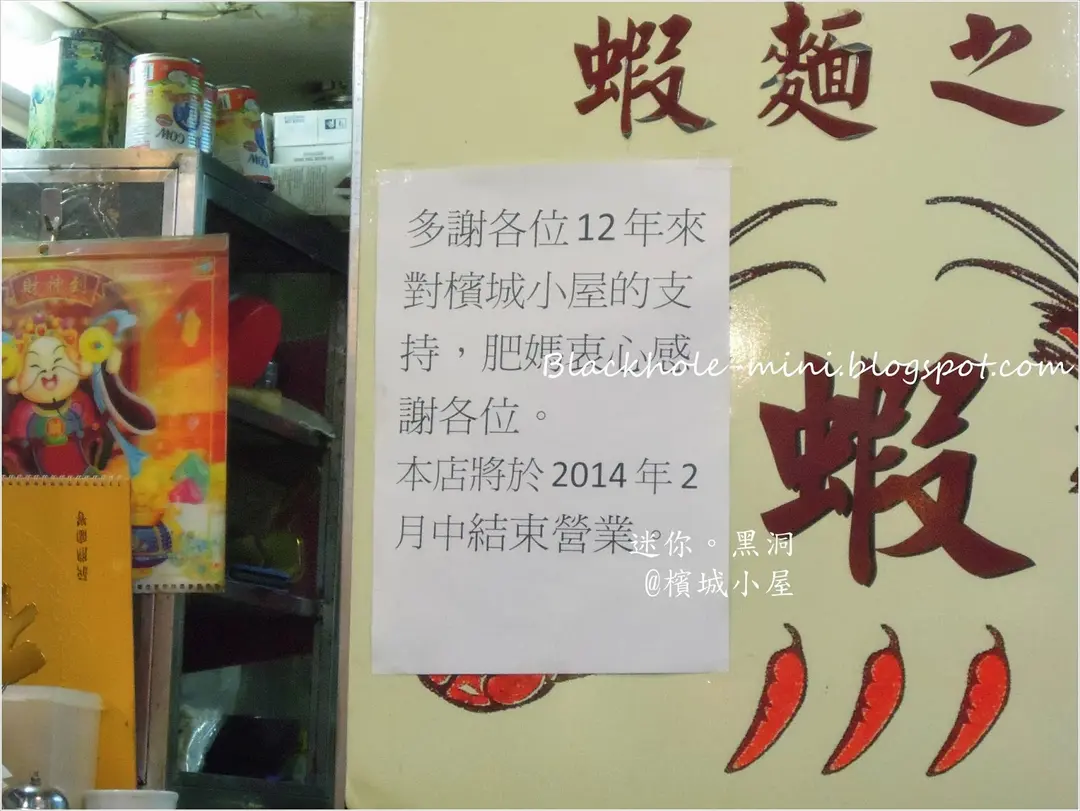 蝦麵之
多謝各位12年來
對檳城小屋的支
持，肥媽衷心感
謝各位。
本店將於2014年2
月中結束營業。
Blackhole-mini.blogspot.com
蝦
迷你。黑洞
@檳城小屋
財神到
COW
COW